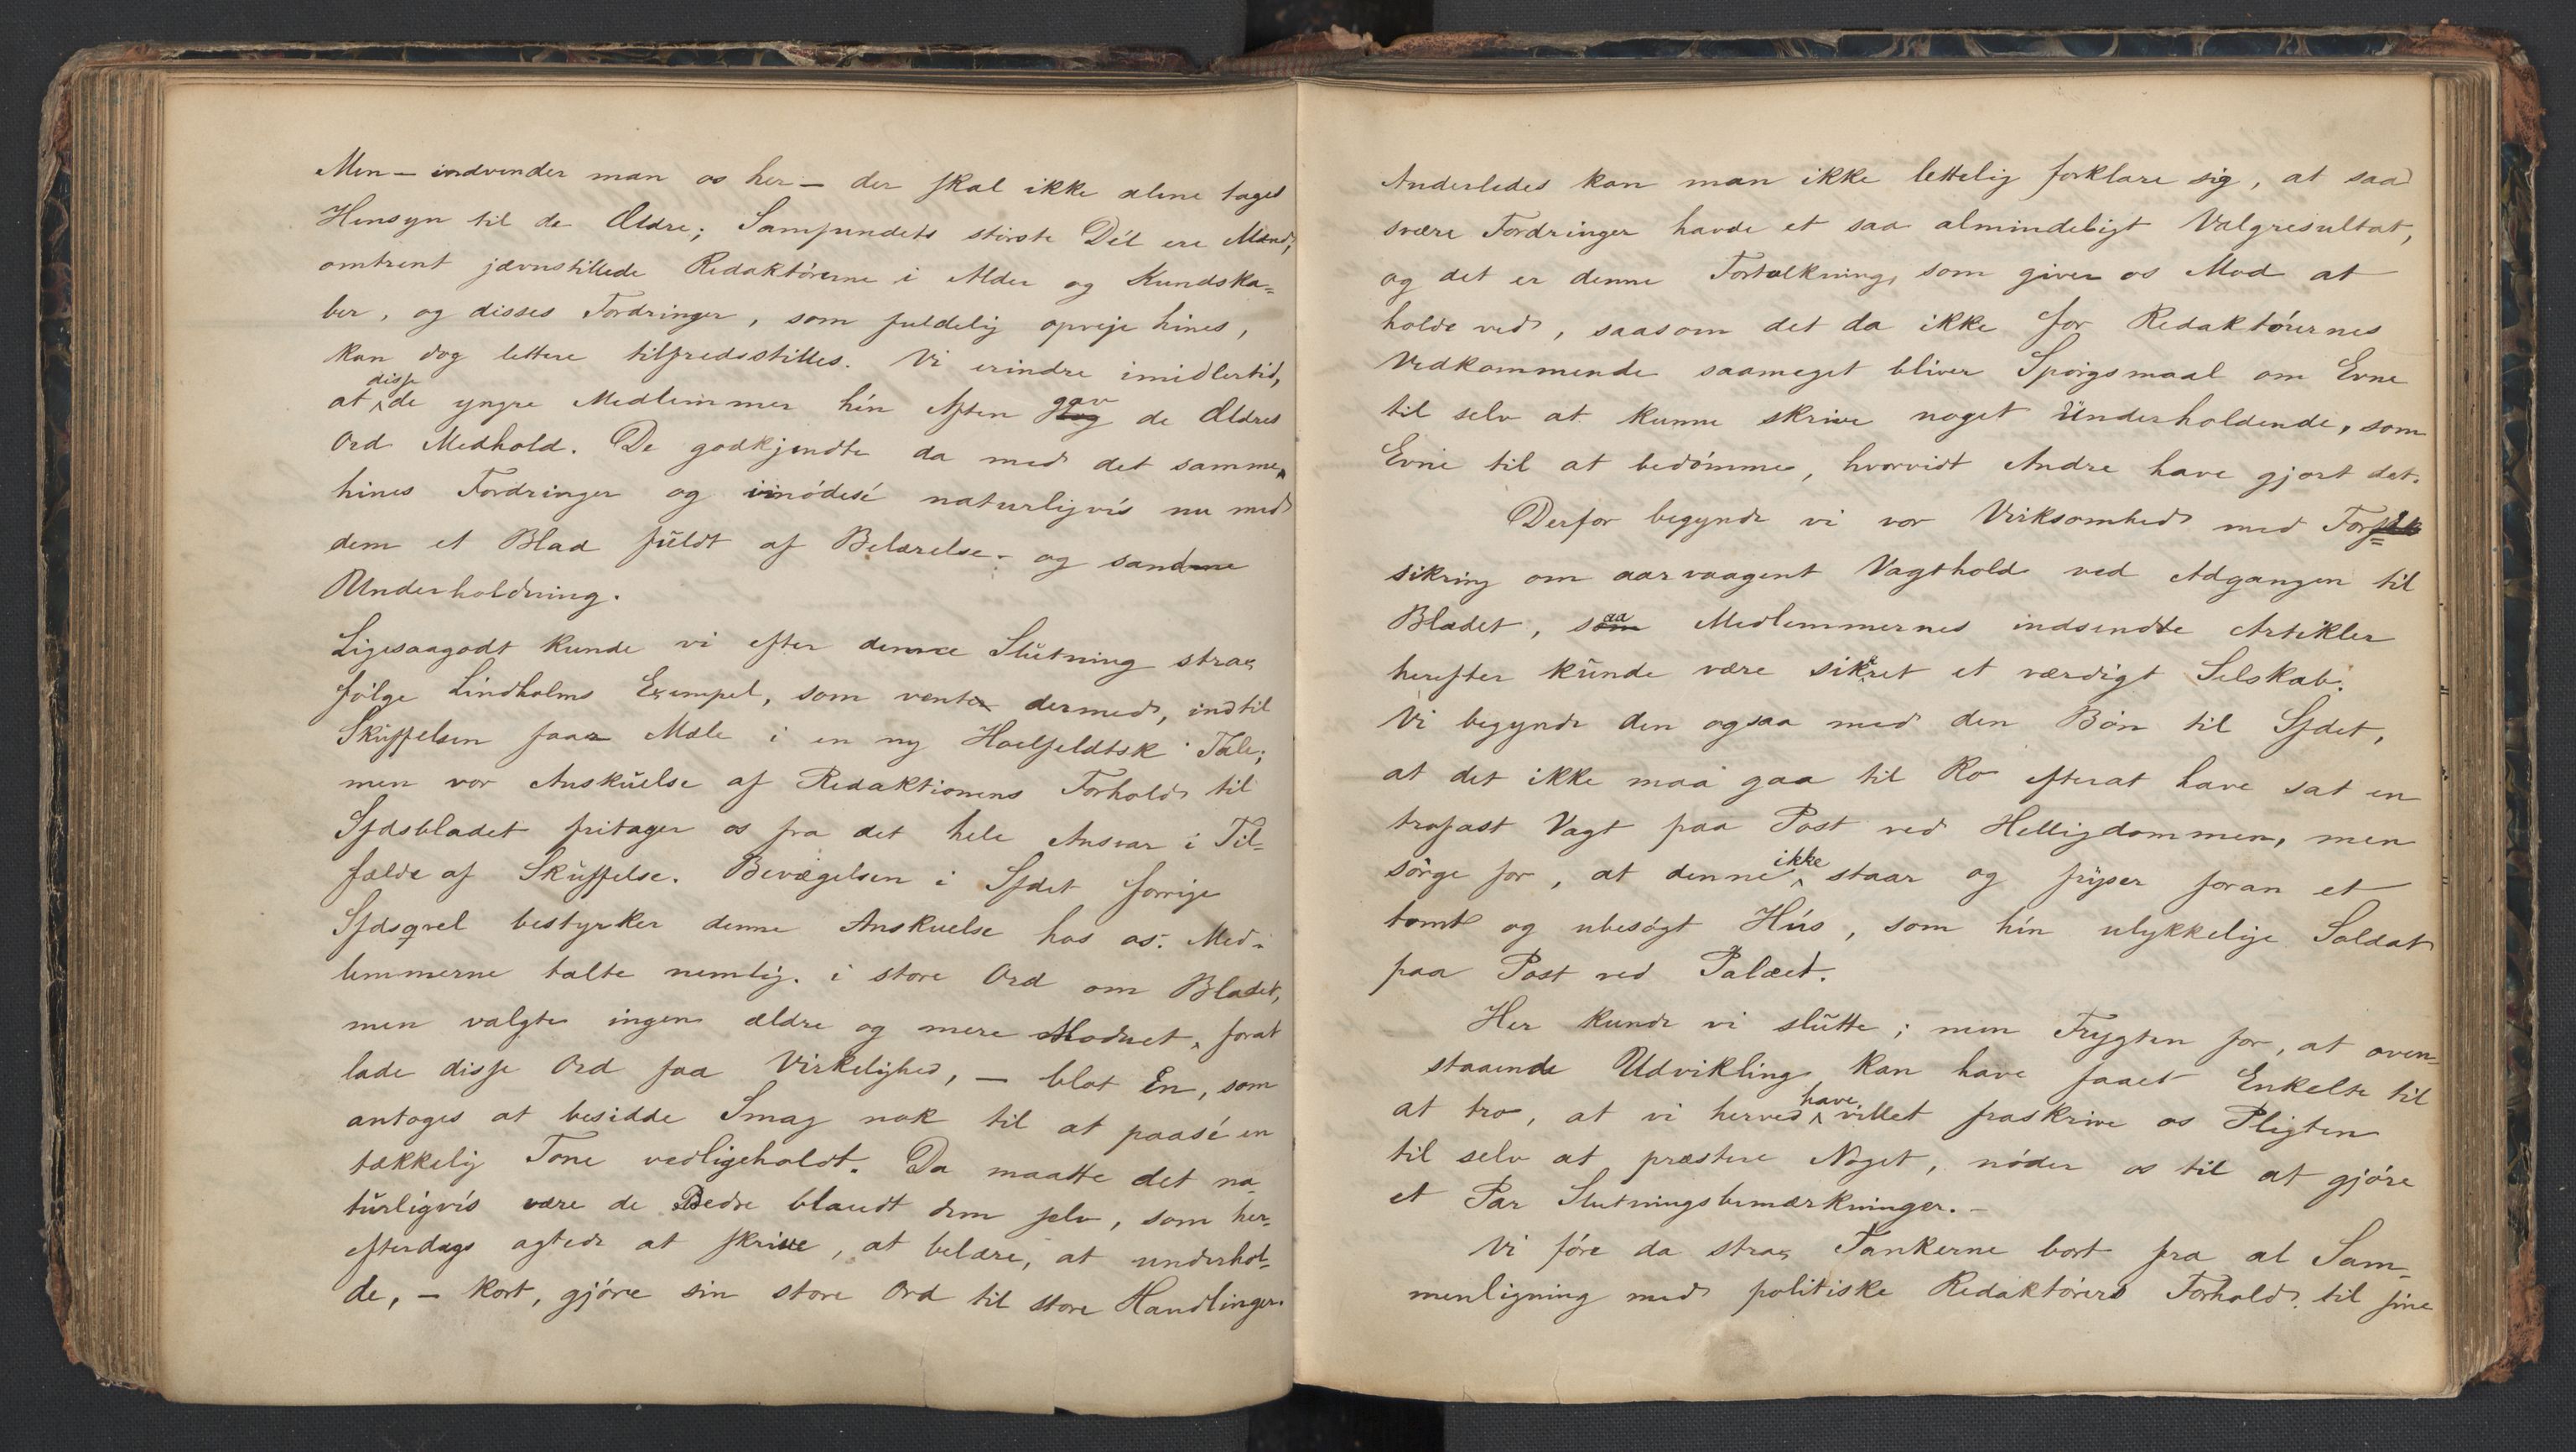 Men – indvender man os her – der skal ikke alene tages
Hensyn til de Ældre; Samfundets störste Dél ere Mænd,
omtrent jævnstillede Redaktörerne i Alder og Kundska=
ber, og disses Fordringer, som fuldelig opveje hines,
kan dog lettere tilfredsstilles. Vi erindre imidlertid,
at disse de yngre Medlemmer hín Aften gav de Ældres
Ord Medhold. De godkjendte da med det samme
hines Fordringer og imödesé naturligvís nu med
dem et Blad fuldt af Belærelse og sand
Underholdning.
Ligesaagodt kunde vi efter denne Slutning strax
fölge Lindholms Exempel, som venter dermed, indtil
Skuffelsen faar Mæle i en ny Hoelfeldtsk Tale;
men vor Anskuelse af Redaktionens Forhold til
Sfdsbladet fritager os fra det hele Ansvar i Til-
fælde af Skuffelse. Bevægelsen i Sfdet forrige
Sfdsqvel bestyrker denne Anskuelse hos os. Med-
lemmerne talte nemlig i store Ord om Bladet,
men valgte ingen ældre og mere Modnet, forat
lade disse Ord faa Virkelighed, – blot Én, som
antoges at besidde Smag nok til at paasé en
tækkelig Tone vedligeholdt. Da maatte det na-
turligvís være de Bedre blandt dem selv, som her-
efterdags agtede at skrive, at belære, at underhol-
de, – kort, gjöre sin store Ord til store Handlinger.
Anderledes kan man ikke lettelig forklare sig, at saa
svære Fordringer havde et saa almindeligt Valgresultat,
og det er denne Fortolkning, som giver os Mod at
holde ved, saasom det da ikke for Redaktörernes
Vedkommende saameget bliver Spörgsmaal om Evne
til selv at kunne skrive noget Underholdende, som
Evne til at bedömme, hvorvidt Andre have gjort det.
Derfor begynde vi vor Virksomhed med For=
sikring om aarvaagent Vagthold ved Adgangen til
Bladet, saa Medlemmernes indsendte Artikler
herefter kunde være sikret et værdigt Selskab.
Vi begynde den ogsaa med den Bön til Sfdet,
at det ikke maa gaa til Ro efterat have sat en
trofast Vagt paa Post ved Helligdommen, men
sörge for, at denne ikke staar og fryser foran et
tomt og ubesögt Hús, som hín ulykkelige Soldat
paa Post ved Palæet.
Her kunde vi slutte; men Frygten for, at oven-
staaende Udvikling kan have faaet Enkelte til
at tro, at vi herved have villet fraskrive os Pligten
til selv at præstere Noget, nöder os til at gjöre
et Par Slutningsbemærkninger. –
Vi före da strax Tankerne bort fra al Sam-
menligning med politiske Redaktörers Forhold til sine